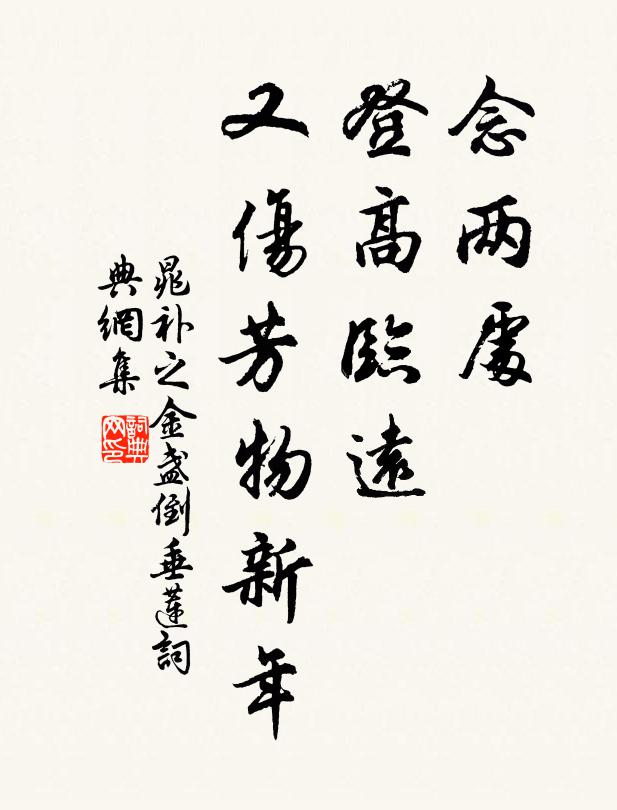 念两處
登高臨遠
又傷芳物新年
晁补之金盞倒垂蓮詞
典網集
詞典网印